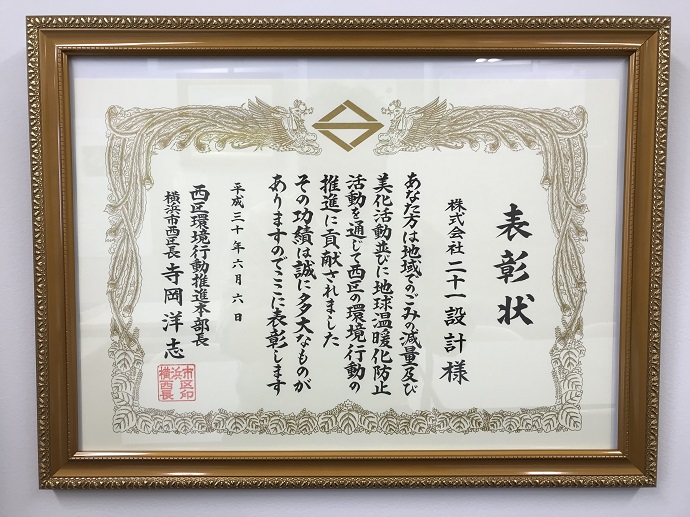 表彰状
株式会社 二十一設計 様
あなた方は地域でのごみの減量及び
美化活動並びに地球温暖化防止
活動を通じて西区の環境行動の
推進に貢献されました
その功績は誠に多大なものが
ありますのでここに表彰します
平成三十年六月六日
西区環境行動推進本部長
横浜市西区長 寺岡洋志
横浜市
西区
長印